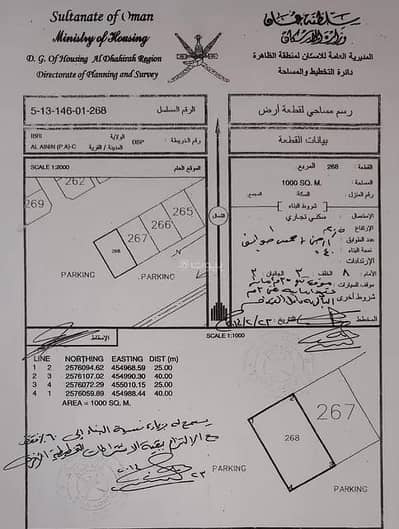 Sultanate of Oman
Ministry of Housing
D. G. Of Housing Al Dhahirah Region
Directorate of Planning and Survey
سلطنة عمان
وزارة الإسكان
المديرية العامة للاسكان لمنطقة الظاهرة
دائرة التخطيط والمساحة
5-13-146-01-268
الرقم المسلسل
رسم مساحي لقطعة أرض
IBRI
الولاية
AL AININ (P.A)-C
المدينة / القرية
DSP
رقم الخريطة :
بيانات القطعة
SCALE 1:2000
الموقع العام
القطعة : 268
المربع
المساحة :
1000 SQ. M.
رقم المنزل
السكة
المجمع
شروط البناء
الإستعمال : سكني تجاري
الإرتفاع
عدد الطوابق :
نسبة البناء : ٤٠
الإرتدادات :
الأمام : ٨ الخلف ٣ الجانبان ٣
موقف للسيارات
شروط أخرى
المخطط
التاريخ
262
269
265
266
267
268
PARKING
PARKING
الشمال
SCALE 1:1000
الإسقاط
LINE NORTHING EASTING DIST (m)
1 2 2576094.62 454968.59 25.00
2 3 2576107.02 454990.30 40.00
3 4 2576072.29 455010.15 25.00
4 1 2576059.89 454988.44 40.00
AREA = 1000 SQ. M.
267
268
PARKING
PARKING
يسمح له بزيادة نسبة البناء إلى ٦٠٪ فقط